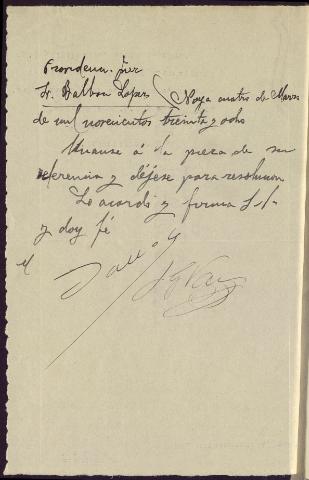 Providencia. Juez
Sr. Balboa López / Noya cuatro de Marzo
de mil novecientos treinta y ocho
Unanse á la pieza de su
referencia y déjese para resolución
Lo acordó y firma S.S.
y doy fé